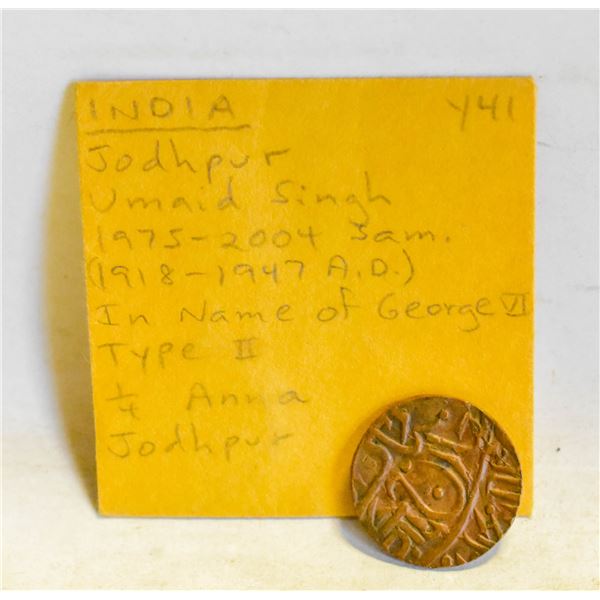 INDIA Y41
Jodhpur
Umaid Singh
1975-2004 Sam.
(1918-1947 A.D.)
In Name of George VI
Type II
1/4 Anna
Jodhpur